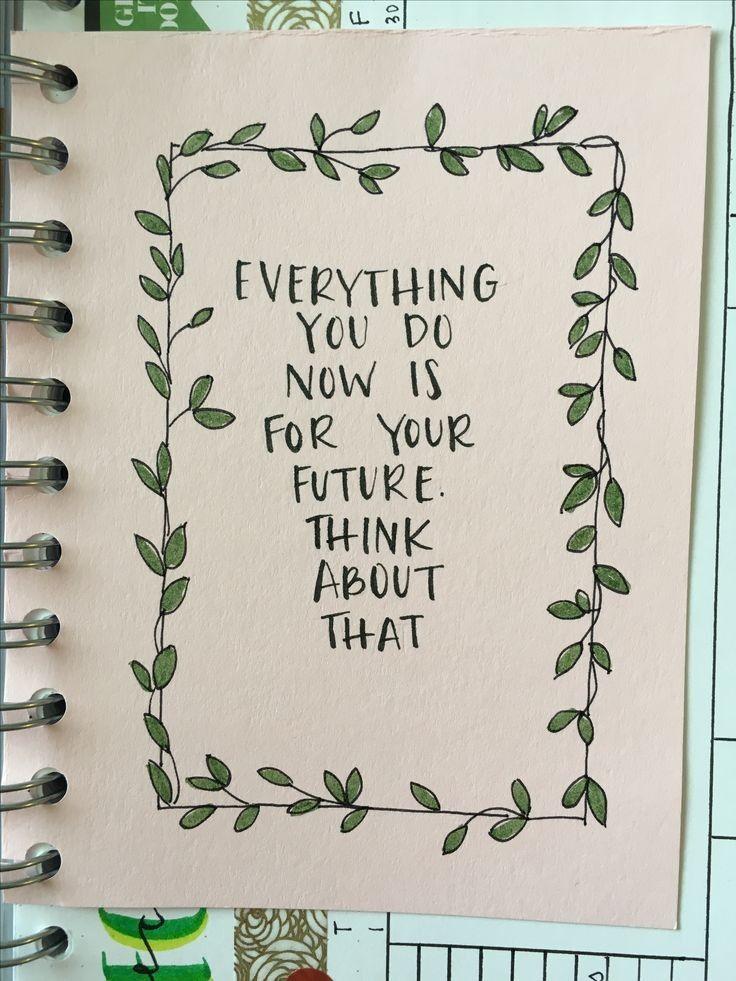 F
30
EVERYTHING
YOU DO
NOW IS
FOR YOUR
FUTURE.
THINK
ABOUT
THAT
T